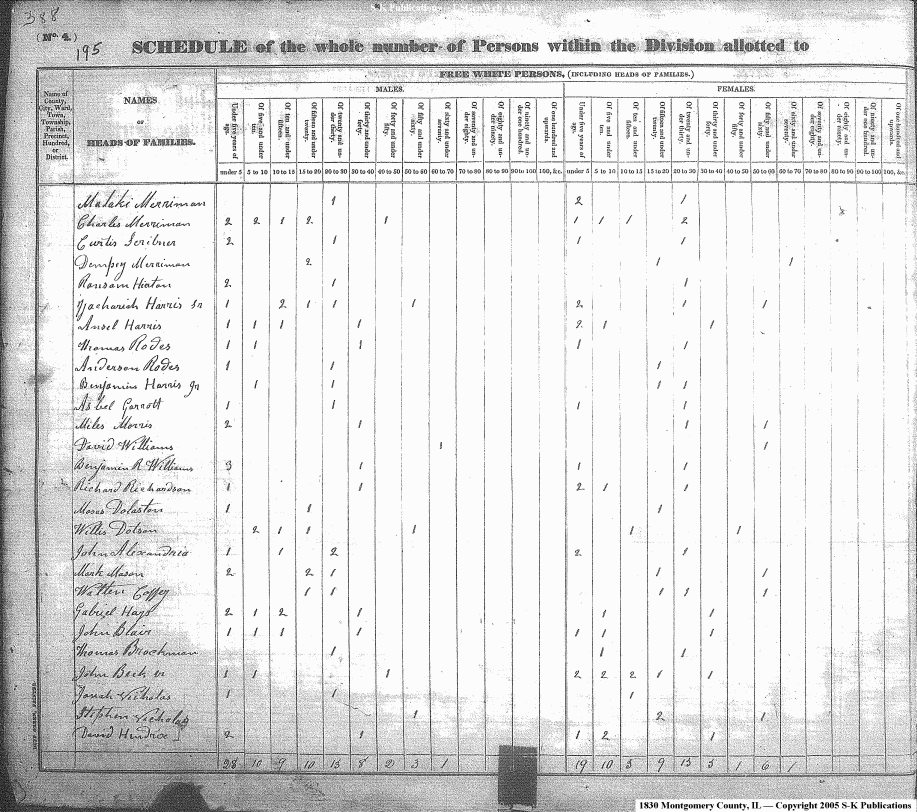 388
(No. 4.)
195
SCHEDULE of the whole number of Persons within the Division allotted to
Name of County, City, Ward, Town, Township, Parish, Precinct, Hundred, or District.
NAMES
OF
HEADS OF FAMILIES.
FREE WHITE PERSONS, (INCLUDING HEADS OF FAMILIES.)
MALES.
FEMALES.
Under five years of age. Of five and under ten. Of ten and under fifteen. Of fifteen and under twenty. Of twenty and under thirty. Of thirty and under forty. Of forty and under fifty. Of fifty and under sixty. Of sixty and under seventy. Of seventy and under eighty. Of eighty and under ninety. Of ninety and under one hundred. Of one hundred and upwards.
Under five years of age. Of five and under ten. Of ten and under fifteen. Of fifteen and under twenty. Of twenty and under thirty. Of thirty and under forty. Of forty and under fifty. Of fifty and under sixty. Of sixty and under seventy. Of seventy and under eighty. Of eighty and under ninety. Of ninety and under one hundred. Of one hundred and upwards.
under 5 5 to 10 10 to 15 15 to 20 20 to 30 30 to 40 40 to 50 50 to 60 60 to 70 70 to 80 80 to 90 90 to 100 100, &c. under 5 5 to 10 10 to 15 15 to 20 20 to 30 30 to 40 40 to 50 50 to 60 60 to 70 70 to 80 80 to 90 90 to 100 100, &c.
Malaki Merriman 1 2 1
Charles Merriman 2 2 1 2 1 1 1 1 2
Curtis Scribner 2 1 1 1
Dempsy Merriman 2 1 1
Ransom Hixton 2 1 1
Zachariah Harris Sr 1 2 1 1 1 2 1 1
Ansel Harris 1 1 1 1 2 1 1
Thomas Rodes 1 1 1 1 1
Anderson Rodes 1 1 1
Benjamin Harris Jr 1 1 1 1
Asbel Garrott 1 1 1 1
Miles Morris 2 1 1 1
David Williams 1 1
Benjamin R Williams 3 1 1 1
Richard Richardson 1 1 2 1 1
Moses Dolaston 1 1 1
Willis Dotson 2 1 1 1 1 1
John Alexandria 1 1 2 2 1
Mark Mason 2 2 1 1 1
Walten Coffey 1 1 1 1 1
Gabriel Hays 2 1 2 1 1 1
John Blair 1 1 1 1 1 1 1
Thomas Brockman 1 1 1
John Beck Sr 1 1 1 2 2 2 1 1
Jonah Nicholas 1 1 1
Stephen Nicholas 1 2 1
David Hendrix 2 1 1 2 1
28 10 9 10 13 8 2 3 1 19 10 5 9 13 5 1 6 1
1830 Montgomery County, IL — Copyright 2005 S-K Publications